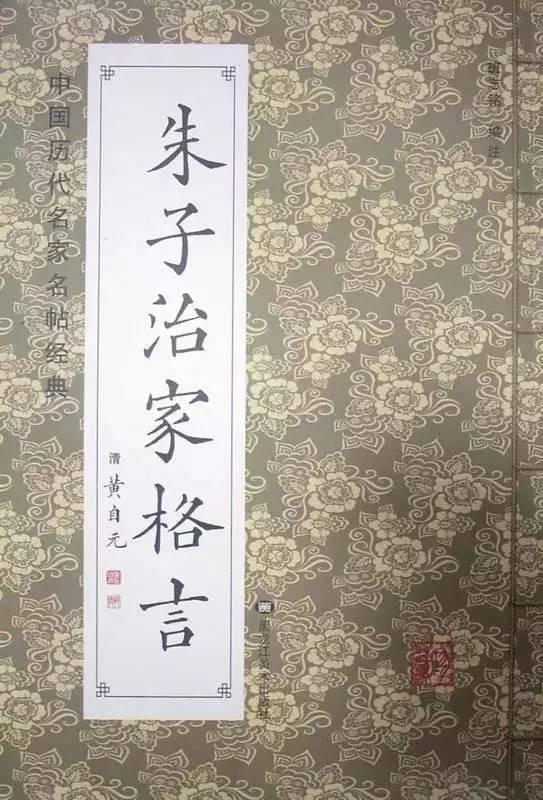 中国历代名家名帖经典
朱子治家格言
清 黄自元
班志铭 编注
黑龙江美术出版社